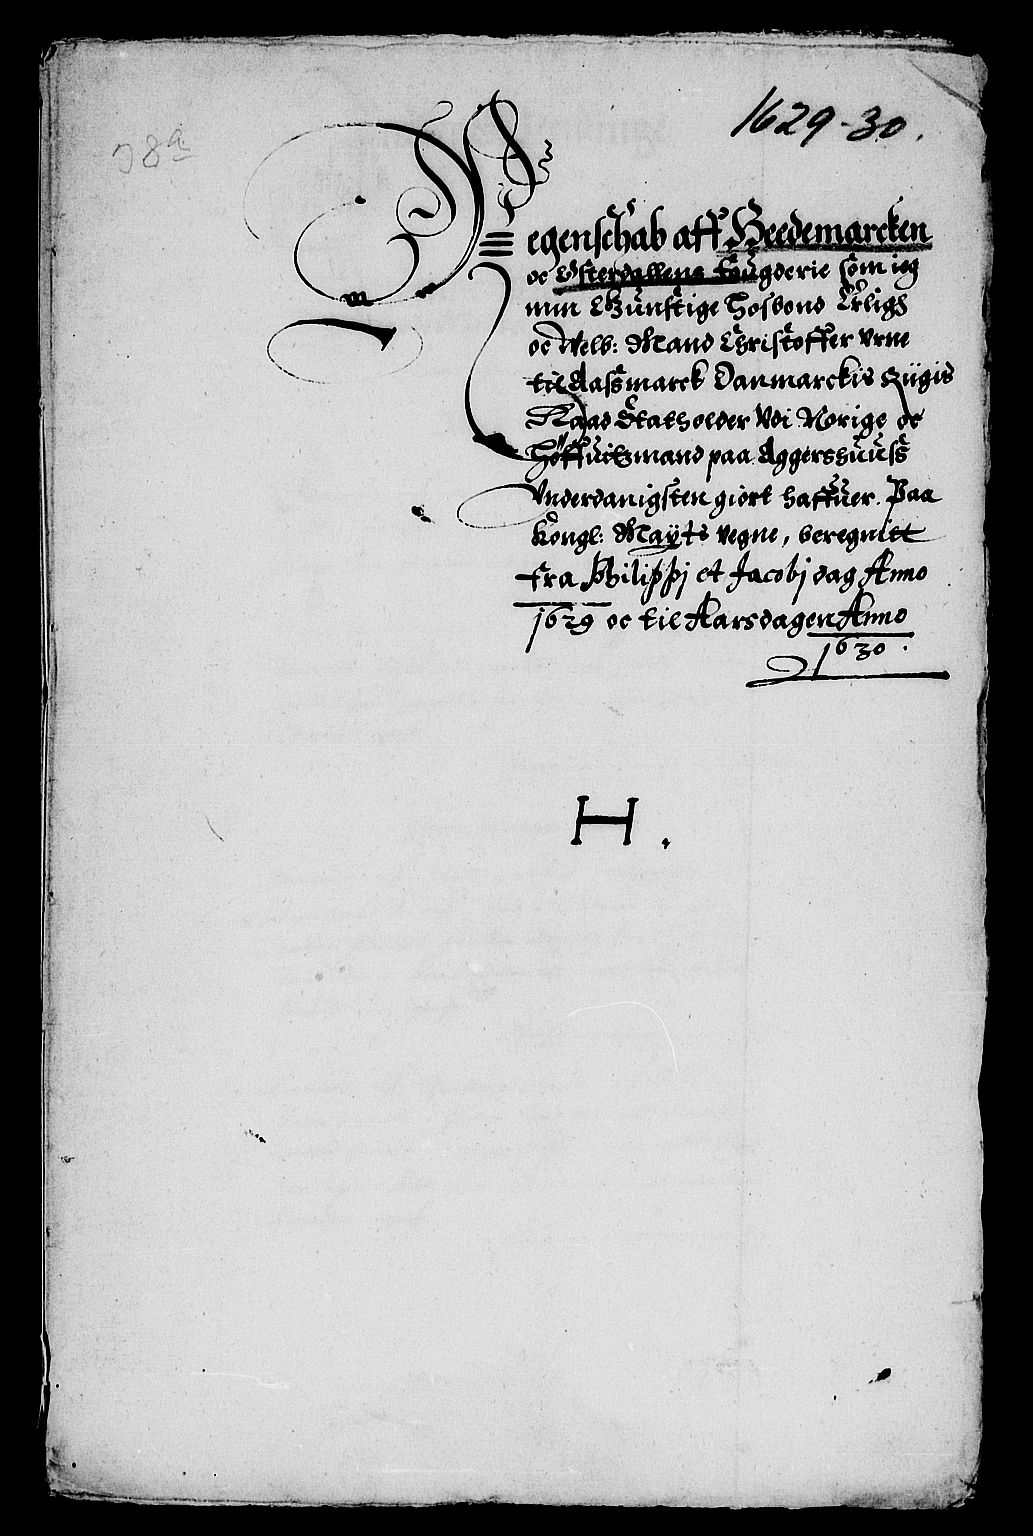 1629-30.
Regenschab aff Heedemarcken
oc Østerdallens fougderie som ieg
min Gunstige Hosbond Erligh
oc Welb: Mand Christoffer Vrne
til Aassmarck Danmarckis Riigis
Raad Statholder Vdi Norige oc
Høffuitzmand paa Aggershuuss
Vnderdanigsten giort haffuer. Paa
Kongl: Maÿts Vegne, beregnitt
fra Philippj et Jacobj dag Anno
1629 oc til Aarsdagen Anno
1630.
H.